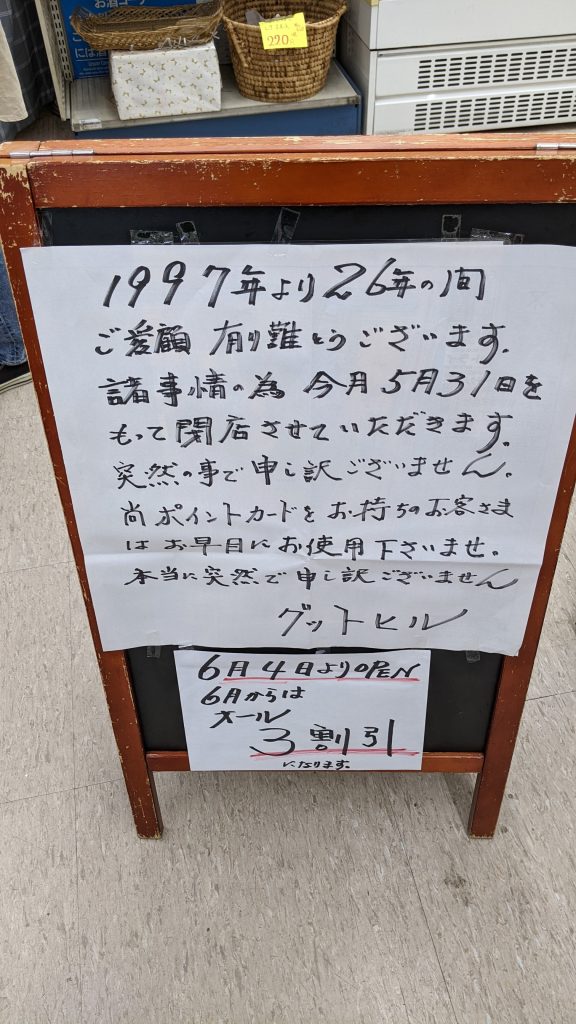 220
1997年より26年の間
ご愛顧 有り難とうございます。
諸事情の為 今月5月31日を
もって閉店させていただきます。
突然の事で申し訳ございません。
尚ポイントカードをお持ちのお客さま
はお早目にお使用下さいませ。
本当に突然で申し訳ございません
グットヒル
6月4日よりOPEN
6月からは
オール
3割引
になります。